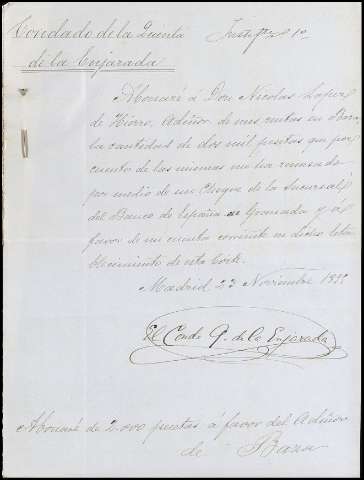 Condado de la Quinta
de la Enjarada
Justifte nº 1º
Abonaré á Don Nicolas Lopez
de Hierro, Admor de mis rentas en Baza
la cantidad de dos mil pesetas que por
cuenta de las mismas me ha remesado
por medio de un Cheque de la Sucursal
del Banco de España de Granada y á
favor de mi cuenta corriente en dicho Esta-
blecimiento de esta Corte.
Madrid 23 Noviembre
El Conde Q. de la Enjarada
Abonaré de 2.000 pesetas á favor del Admor
de Baza